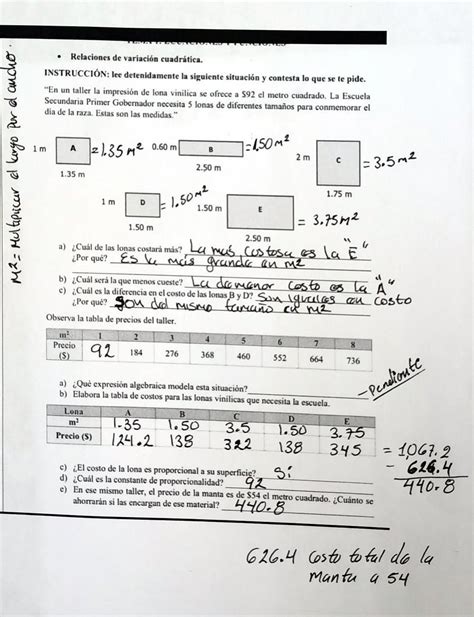 TEMA 1. ECUACIONES Y FUNCIONES
• Relaciones de variación cuadrática.
INSTRUCCIÓN: lee detenidamente la siguiente situación y contesta lo que se te pide.
"En un taller la impresión de lona vinílica se ofrece a $92 el metro cuadrado. La Escuela
Secundaria Primer Gobernador necesita 5 lonas de diferentes tamaños para conmemorar el
día de la raza. Estas son las medidas."
M² = Multiplicar el largo por el ancho.
1 m A = 1.35 M² 0.60 m B = 1.50 M² 2 m C = 3.5 m²
1.35 m 2.50 m 1.75 m
1 m D = 1.50 M² 1.50 m E = 3.75 M²
1.50 m 2.50 m
a) ¿Cuál de las lonas costará más? La más costosa es la "E"
¿Por qué? Es la más grande en m2
b) ¿Cuál será la que menos cueste? La de menor costo es la "A"
c) ¿Cuál es la diferencia en el costo de las lonas B y D? Son iguales en costo
¿Por qué? Son del mismo tamaño en m2
Observa la tabla de precios del taller.
m² 1 2 3 4 5 6 7 8
Precio ($) 92 184 276 368 460 552 664 736
a) ¿Qué expresión algebraica modela esta situación? - Pendiente
b) Elabora la tabla de costos para las lonas vinílicas que necesita la escuela.
Lona A B C D E
m² 1.35 1.50 3.5 1.50 3.75
Precio ($) 124.2 138 322 138 345 = 1,067.2
- 626.4
440.8
c) ¿El costo de la lona es proporcional a su superficie? Si
d) ¿Cuál es la constante de proporcionalidad? 92
e) En ese mismo taller, el precio de la manta es de $54 el metro cuadrado. ¿Cuánto se
ahorrarán si las encargan de ese material? 440.8
626.4 costo total de la
manta a 54